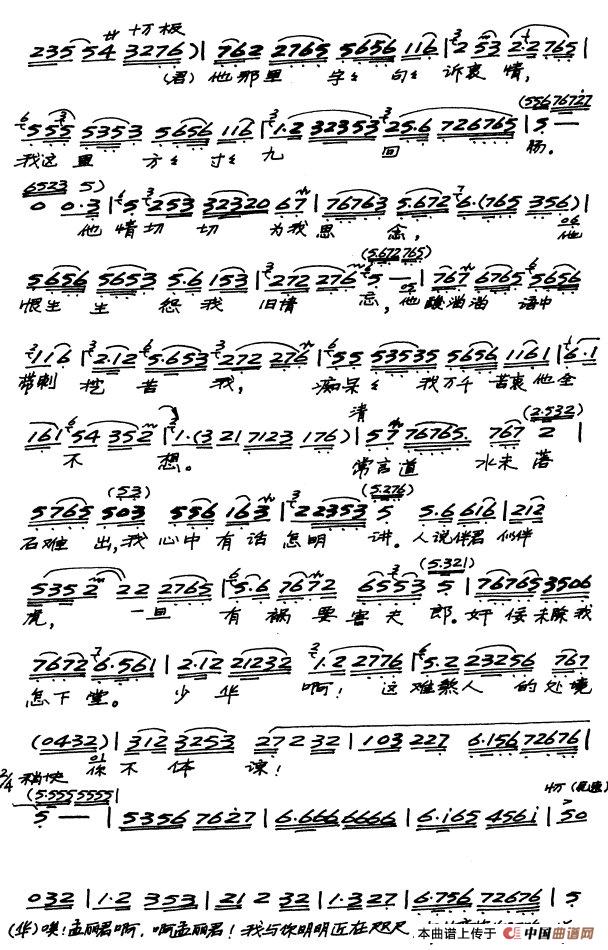 廿 十方板
235 54 3276 ) | 762 2765 5656 116 | 2 53 2·2 765 |
(君) 他那里 字々 句々 诉衷情,
(5567672̇7)
555 5353 5656 116 | 1·2 32353 25·6 726765 | 5 —
我这里 方々 寸々 九 回 肠。
6523 5)
0 0·3 | 5 253 32320 67 | 76763 5·672 6·(765 356) |
他 情切 切 为我思 念, 他
06
(5672765)
5656 5653 5·6 153 | 272 276 5 — | 767 6765 5656
05
恨生 生 怨我 旧情 忘, 他酸溜溜 语中
116 | 2·12 5·653 272 276 | 55 53535 5656 1161 | 6·1
带刺 挖苦 我, 痴呆々 我万千 苦衷他全
161 54 352 | 1·(3 21 7123 176) | 57 76765 767 2 |
清
(2·532)
不 想。 常言道 水未落
(53) (5·276)
5765 503 556 163 | 2 22353 5 5·6 616 | 212
石难 出,我心中 有话怎明 讲。人说伴君 似伴
(5·321)
5352 22 2765 | 5·6 7672 6553 5 | 76765 3506
虎, 一旦 有祸要害夫 郎。奸佞未除我
7672 6·561 | 2·12 21232 1·2 2776 | 5·2 23256 767
怎下堂。 少华 啊! 这难熬人 的处境
(0432) | 312 3253 272 32 | 103 227 6·156 72676 |
01
你不体 谅!
2/4 稍快
(5·555 5555 |
5 — | 5356 7627 | 6·666 6666 | 6·i65 456i | 50
032 | 1·2 353 | 21 2 32 | 1·327 | 6·756 72676 | 5
(华) 唉!孟丽君啊, 啊孟丽君!我与你明明近在咫尺
本曲谱上传于 中国曲谱网